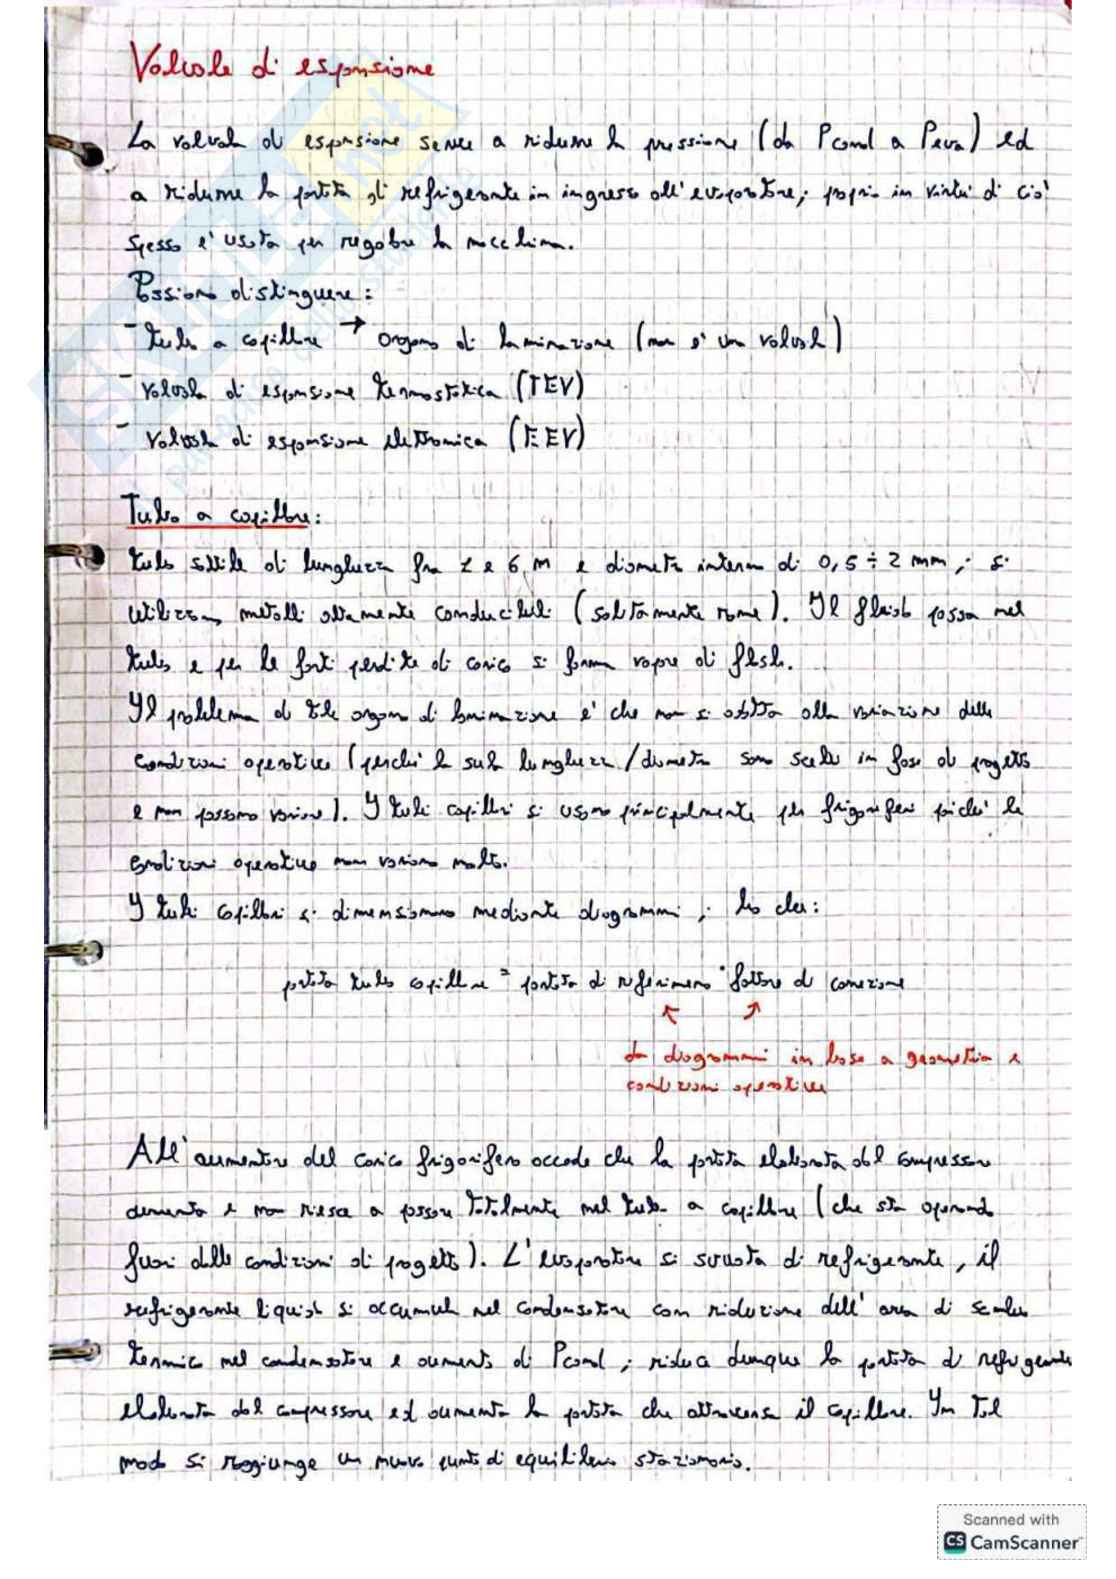 Valvole di espansione
La valvola di espansione serve a ridurre la pressione (da Pcond a Peva) ed
a ridurre la portata di refrigerante in ingresso all'evaporatore; proprio in virtù di ciò
spesso e' usata per regolare la macchina.
Possiamo distinguere:
- tubo a capillare → organo di laminazione (non e' una valvola)
- valvola di espansione termostatica (TEV)
- valvola di espansione elettronica (EEV)
Tubo a capillare:
tubo sottile di lunghezza fra 1 e 6 m e diametro interno di 0,5 ÷ 2 mm; si
utilizzano metalli altamente conducibili (solitamente rame). Il fluido passa nel
tubo e per le forti perdite di carico si forma vapore di flash.
Il problema di tale organo di laminazione e' che non si adatta alla variazione delle
condizioni operative (perché la sua lunghezza/diametro sono scelti in fase di progetto
e non possono variare). I tubi capillari si usano principalmente per frigoriferi poiché le
condizioni operative non variano molto.
I tubi capillari si dimensionano mediante diagrammi; ho che:
portata tubo capillare = portata di riferimento · fattore di correzione
da diagrammi in base a geometria e
condizioni operative
All'aumentare del carico frigorifero accade che la portata elaborata dal compressore
aumenta e non riesce a passare totalmente nel tubo a capillare (che sta operando
fuori dalle condizioni di progetto). L'evaporatore si svuota di refrigerante, il
refrigerante liquido si accumula nel condensatore con riduzione dell'area di scambio
termico nel condensatore e aumento di Pcond; riduce dunque la portata di refrigerante
elaborata dal compressore ed aumenta la portata che attraversa il capillare. In tal
modo si raggiunge un nuovo punto di equilibrio stazionario.
Scanned with
CS CamScanner